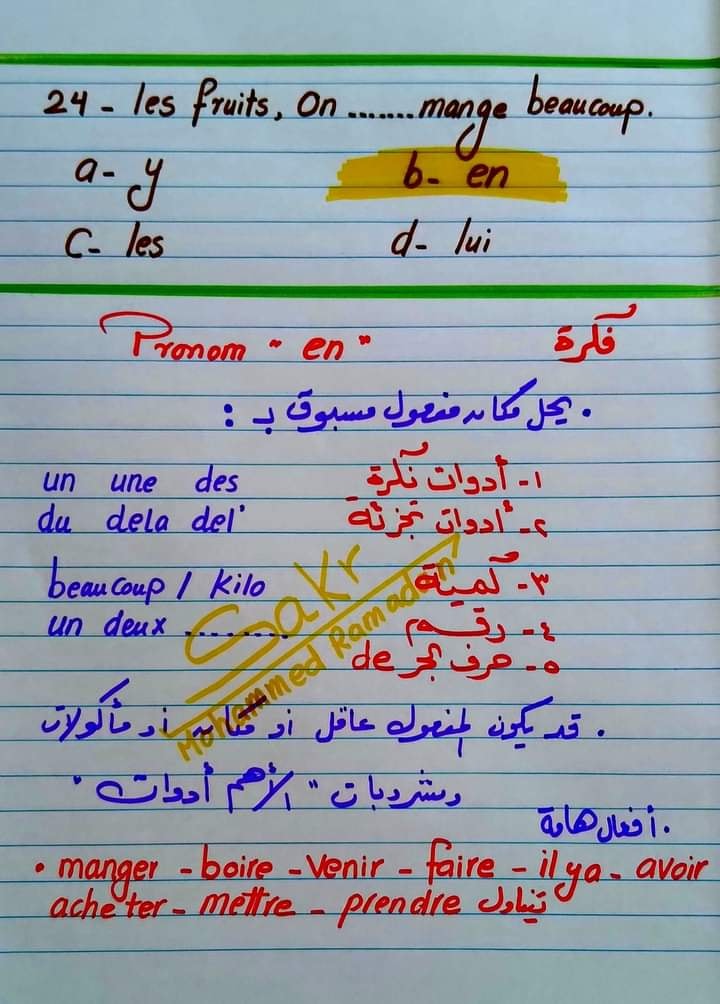 24 - les fruits, On ....... mange beaucoup.
a- y b- en
C- les d- lui
Pronom "en" فكرة
. يحل مكان مفعول مسبوق بـ :
١- أدوات نكرة un une des
٢- أدوات تجزئة du dela del'
٣- كمية beaucoup / kilo
٤- رقم un deux ........
٥- حرف الجر de
Sakr
Mohammed Ramadan
. قد يكون المفعول عاقل او مكان او مأكولات
ومشروبات " الأهم أدوات "
. أفعال هامة
• manger - boire - venir - faire - il ya - avoir
acheter - mettre - prendre تيناول